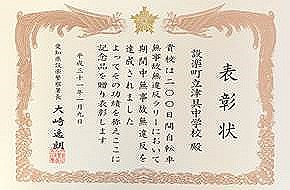 表彰状
設楽町立津具中学校 殿
貴校は二〇〇日間自転車
無事故無違反ラリーにおいて
期間中無事故無違反を
達成されました
よってその功績を称えここに
記念品を贈り表彰します
平成三十一年一月九日
愛知県設楽警察署長